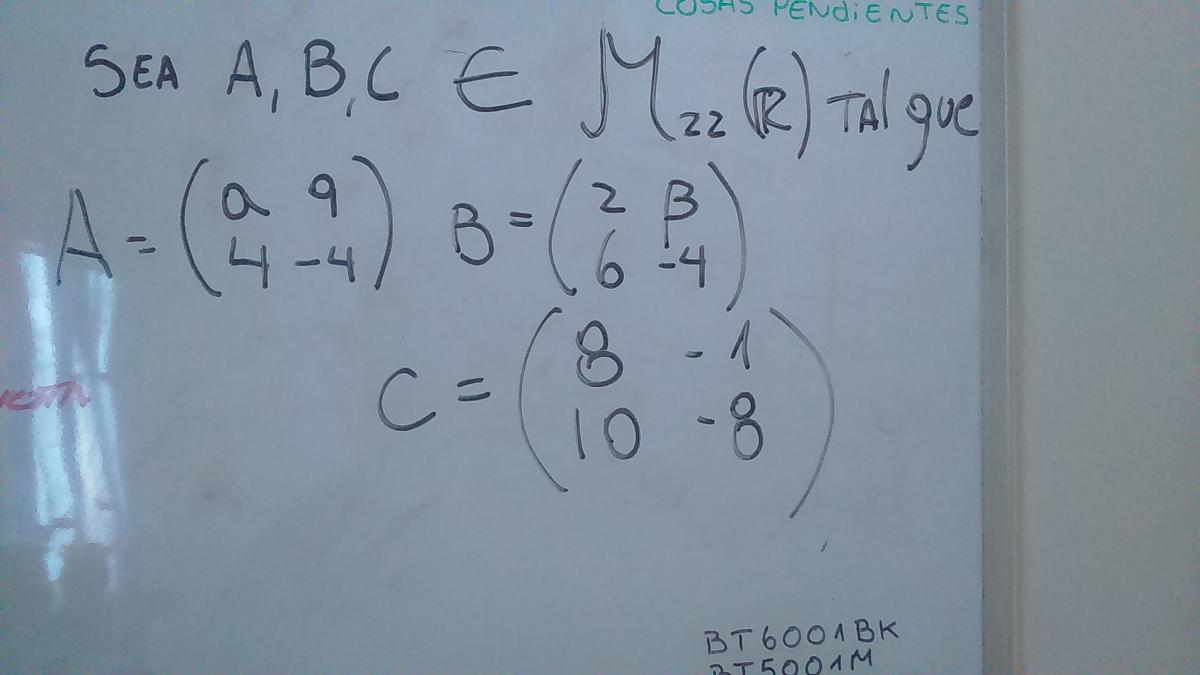 COSAS PENDiENTES
SEA A, B, C ∈ M22 (ℝ) TAl que
A = (a 9
4 -4) B = (2 β
6 -4)
C = (8 -1
10 -8)
BT6001BK
BT5001M